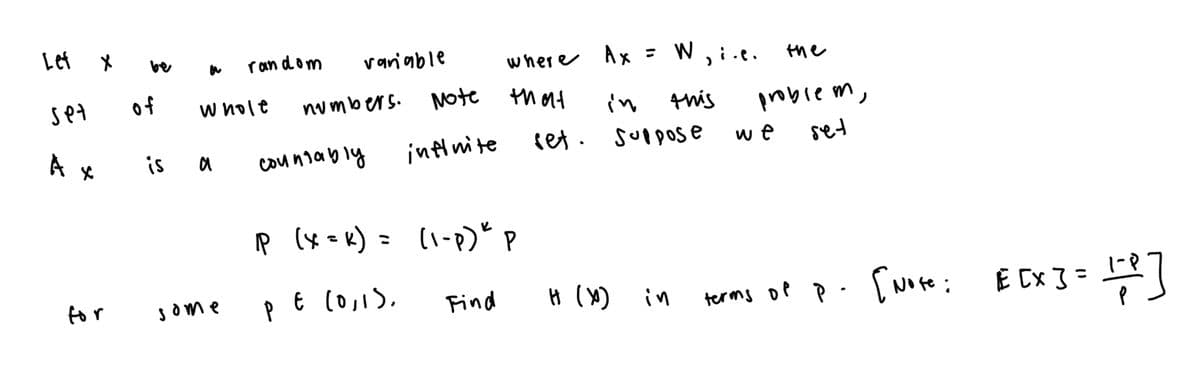 Let X be a random variable where Ax = W, i.e. the
set of whole numbers. Note that in this problem,
Ax is a countably infinite set. Suppose we set
P (X = k) = (1-p)^k p
for some p ∈ (0,1). Find H (X) in terms of p. [Note: E[X] = 1-p/p]